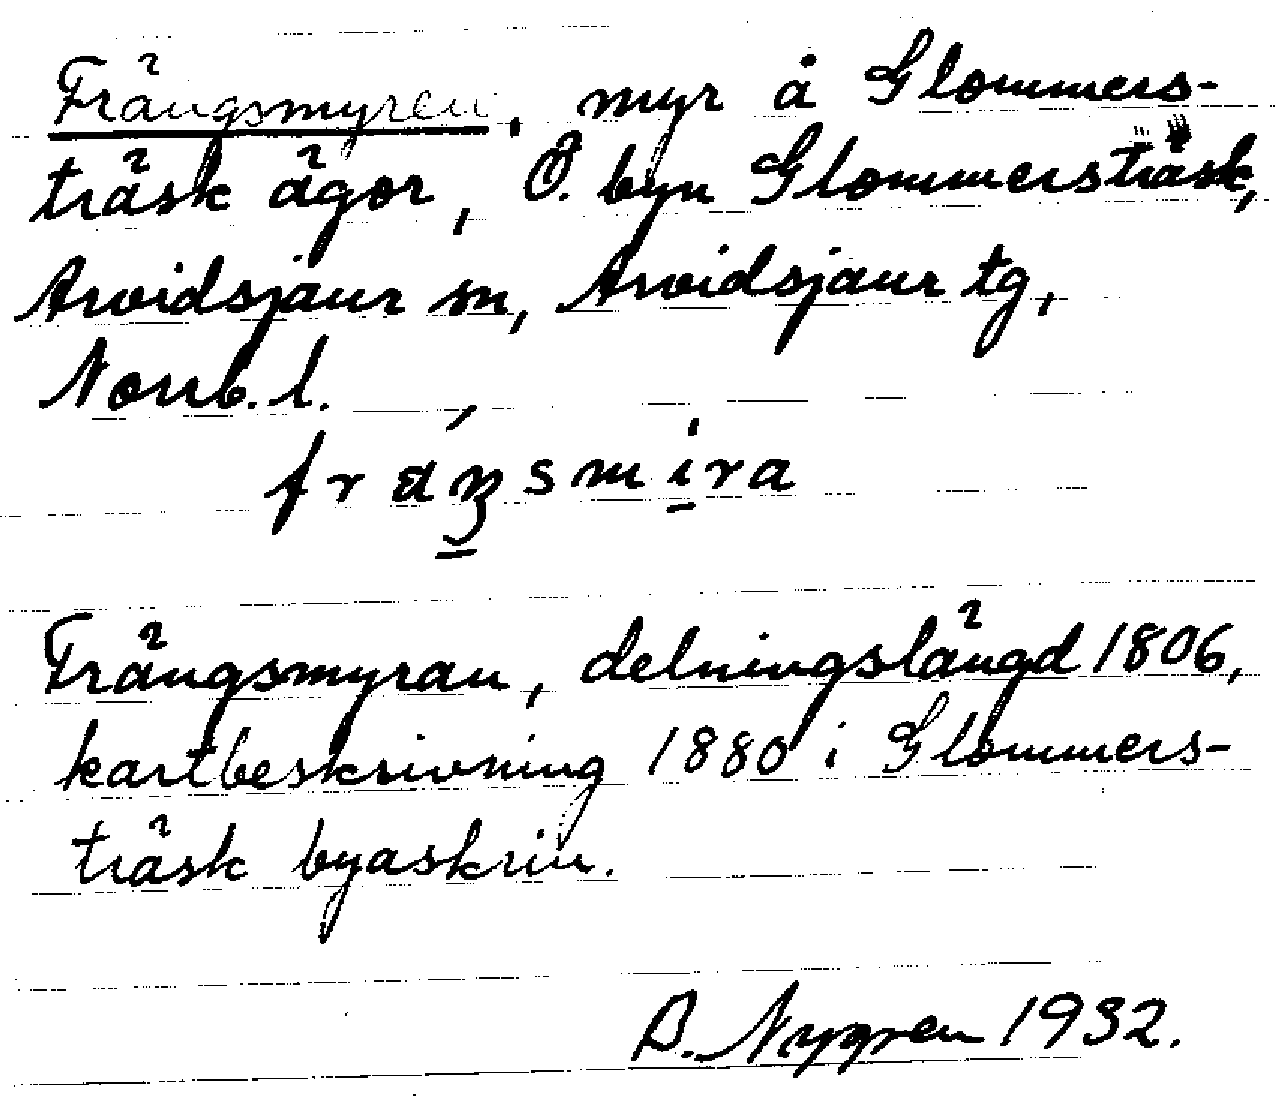 Frängsmyren, myr å Glommers-
träsk ägor, Ö. byn Glommersträsk,
Arvidsjaur sn, Arvidsjaur tg,
Norrb. l.
Frängsmyran, delningslängd 1806,
kartbeskrivning 1880 i Glommers-
träsk byaskrin.
B. Nygren 1932.